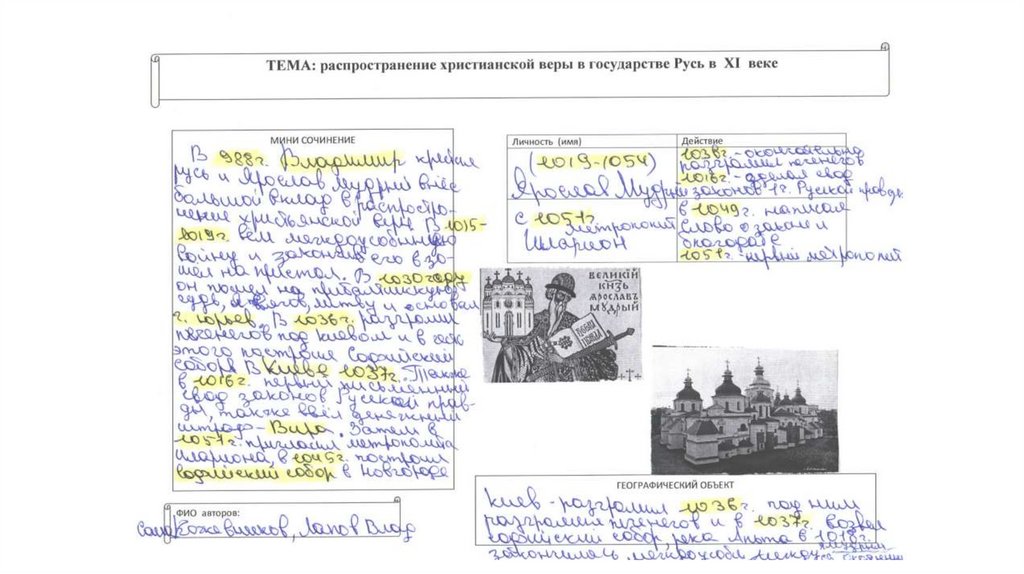 ТЕМА: распространение христианской веры в государстве Русь в XI веке
МИНИ СОЧИНЕНИЕ
В 988г. Владимир крестил
русь и Ярослав Мудрый внёс
большой вклад в распростро-
нение христьянской веры. В 1015-
1019г. вёл междоусобную
войну и закончив его взо-
шёл на престол. В 1030 году
он пошёл на прибалтийскую
литву и основал
г. Юрьев. В 1036г. разгромил
печенегов под киевом и в
этого построил Софийский
собор в Киеве 1037г. Также
в 1016г. первый письменный
свод законов Русской прав-
ды, также ввёл денежный
штраф - Вира. Затем в
1051г. пригласил метрополита
илариона, в 1045г. построил
софийский собор в Новгороде
Личность (имя)
Действие
(1019-1054)
Ярослав Мудрый
1036г. - окончательно
разгромил печенегов
1016г. - сделал свод
законов 1г. Русской правды
с 1051г.
метрополит
Иларион
в 1049г. написал
Слово о законе и
благодате
1051г. - первый метрополит
ВЕЛИКIЙ
КНЗЬ
ЯРОСЛАВЪ
МУДРЫЙ
ГЕОГРАФИЧЕСКИЙ ОБЪЕКТ
Киев - разгромил 1036г. под ним
разгромил печенегов и в 1037г. возвёл
софийский собор, река Альта в 1018г.
закончилась между
ФИО авторов:
Кожевников, Лапов Влад